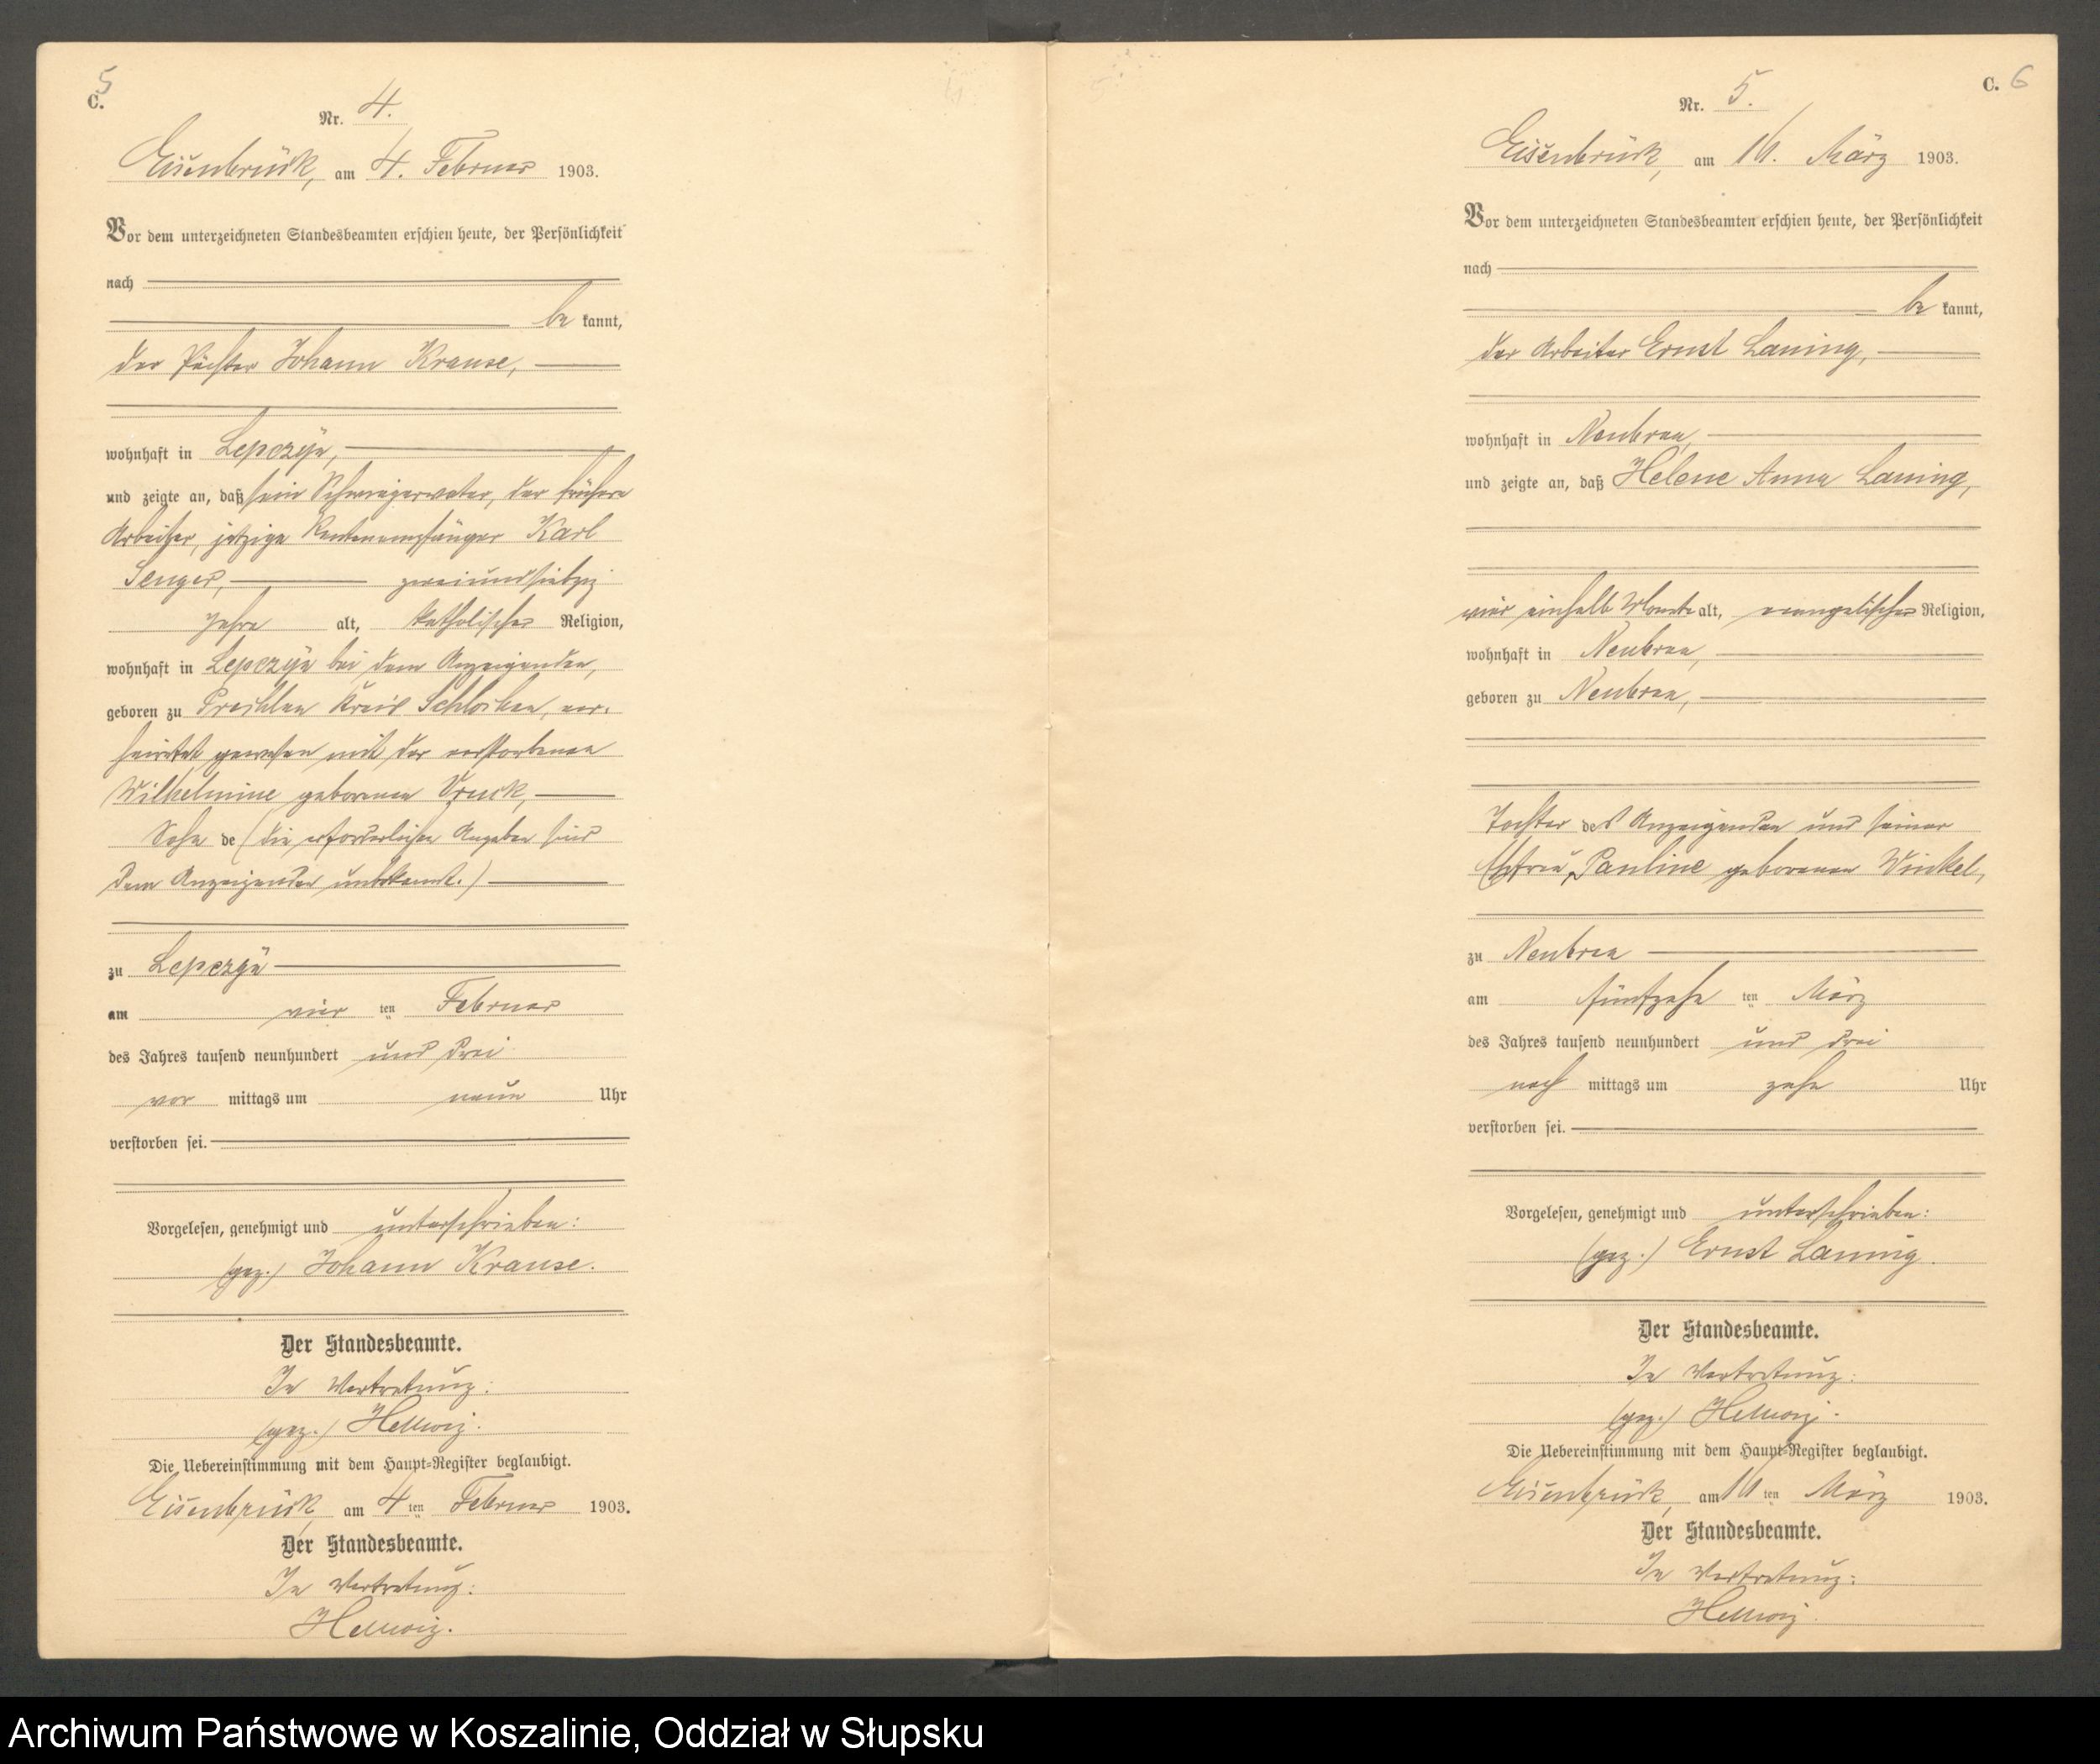 5
C.
Nr. 4.
Eisenbrück, am 4. Februar 1903.
Vor dem unterzeichneten Standesbeamten erschien heute, der Persönlichkeit
nach
be kannt,
der Pächter Johann Krause,
wohnhaft in Lepczÿn,
und zeigte an, daß sein Schwiegervater, der frühere
Arbeiter, jetzige Rentenempfänger Karl
Senger, zweiundsiebzig
Jahre alt, katholischer Religion,
wohnhaft in Lepczÿn bei dem Anzeigenden,
geboren zu Kreis Schlochau, ver-
heirathet gewesen mit der verstorbenen
Wilhelmine geborenen
Sohn de (die erforderlichen Angaben sind
dem Anzeigenden unbekannt.)
zu Lepczÿn
am vier ten Februar
des Jahres tausend neunhundert und drei
vor mittags um neun Uhr
verstorben sei.
Vorgelesen, genehmigt und unterschrieben:
(gez.) Johann Krause.
Der Standesbeamte.
In Vertretung:
(gez.) Hellwig.
Die Uebereinstimmung mit dem Haupt-Register beglaubigt.
Eisenbrück, am 4 ten Februar 1903.
Der Standesbeamte.
In Vertretung:
Hellwig.
C. 6
Nr. 5.
Eisenbrück, am 16. März 1903.
Vor dem unterzeichneten Standesbeamten erschien heute, der Persönlichkeit
nach
be kannt,
der Arbeiter Ernst Laning,
wohnhaft in Neubraa,
und zeigte an, daß Helene Anna Laning,
vier einhalb Monate alt, evangelischer Religion,
wohnhaft in Neubraa,
geboren zu Neubraa,
Tochter des Anzeigenden und seiner
Ehefrau Pauline geborenen Winkel,
zu Neubraa
am fünfzehn ten März
des Jahres tausend neunhundert und drei
nach mittags um zehn Uhr
verstorben sei.
Vorgelesen, genehmigt und unterschrieben:
(gez.) Ernst Laning.
Der Standesbeamte.
In Vertretung:
(gez.) Hellwig.
Die Uebereinstimmung mit dem Haupt-Register beglaubigt.
Eisenbrück, am 16 ten März 1903.
Der Standesbeamte.
In Vertretung:
Hellwig.
Archiwum Państwowe w Koszalinie, Oddział w Słupsku